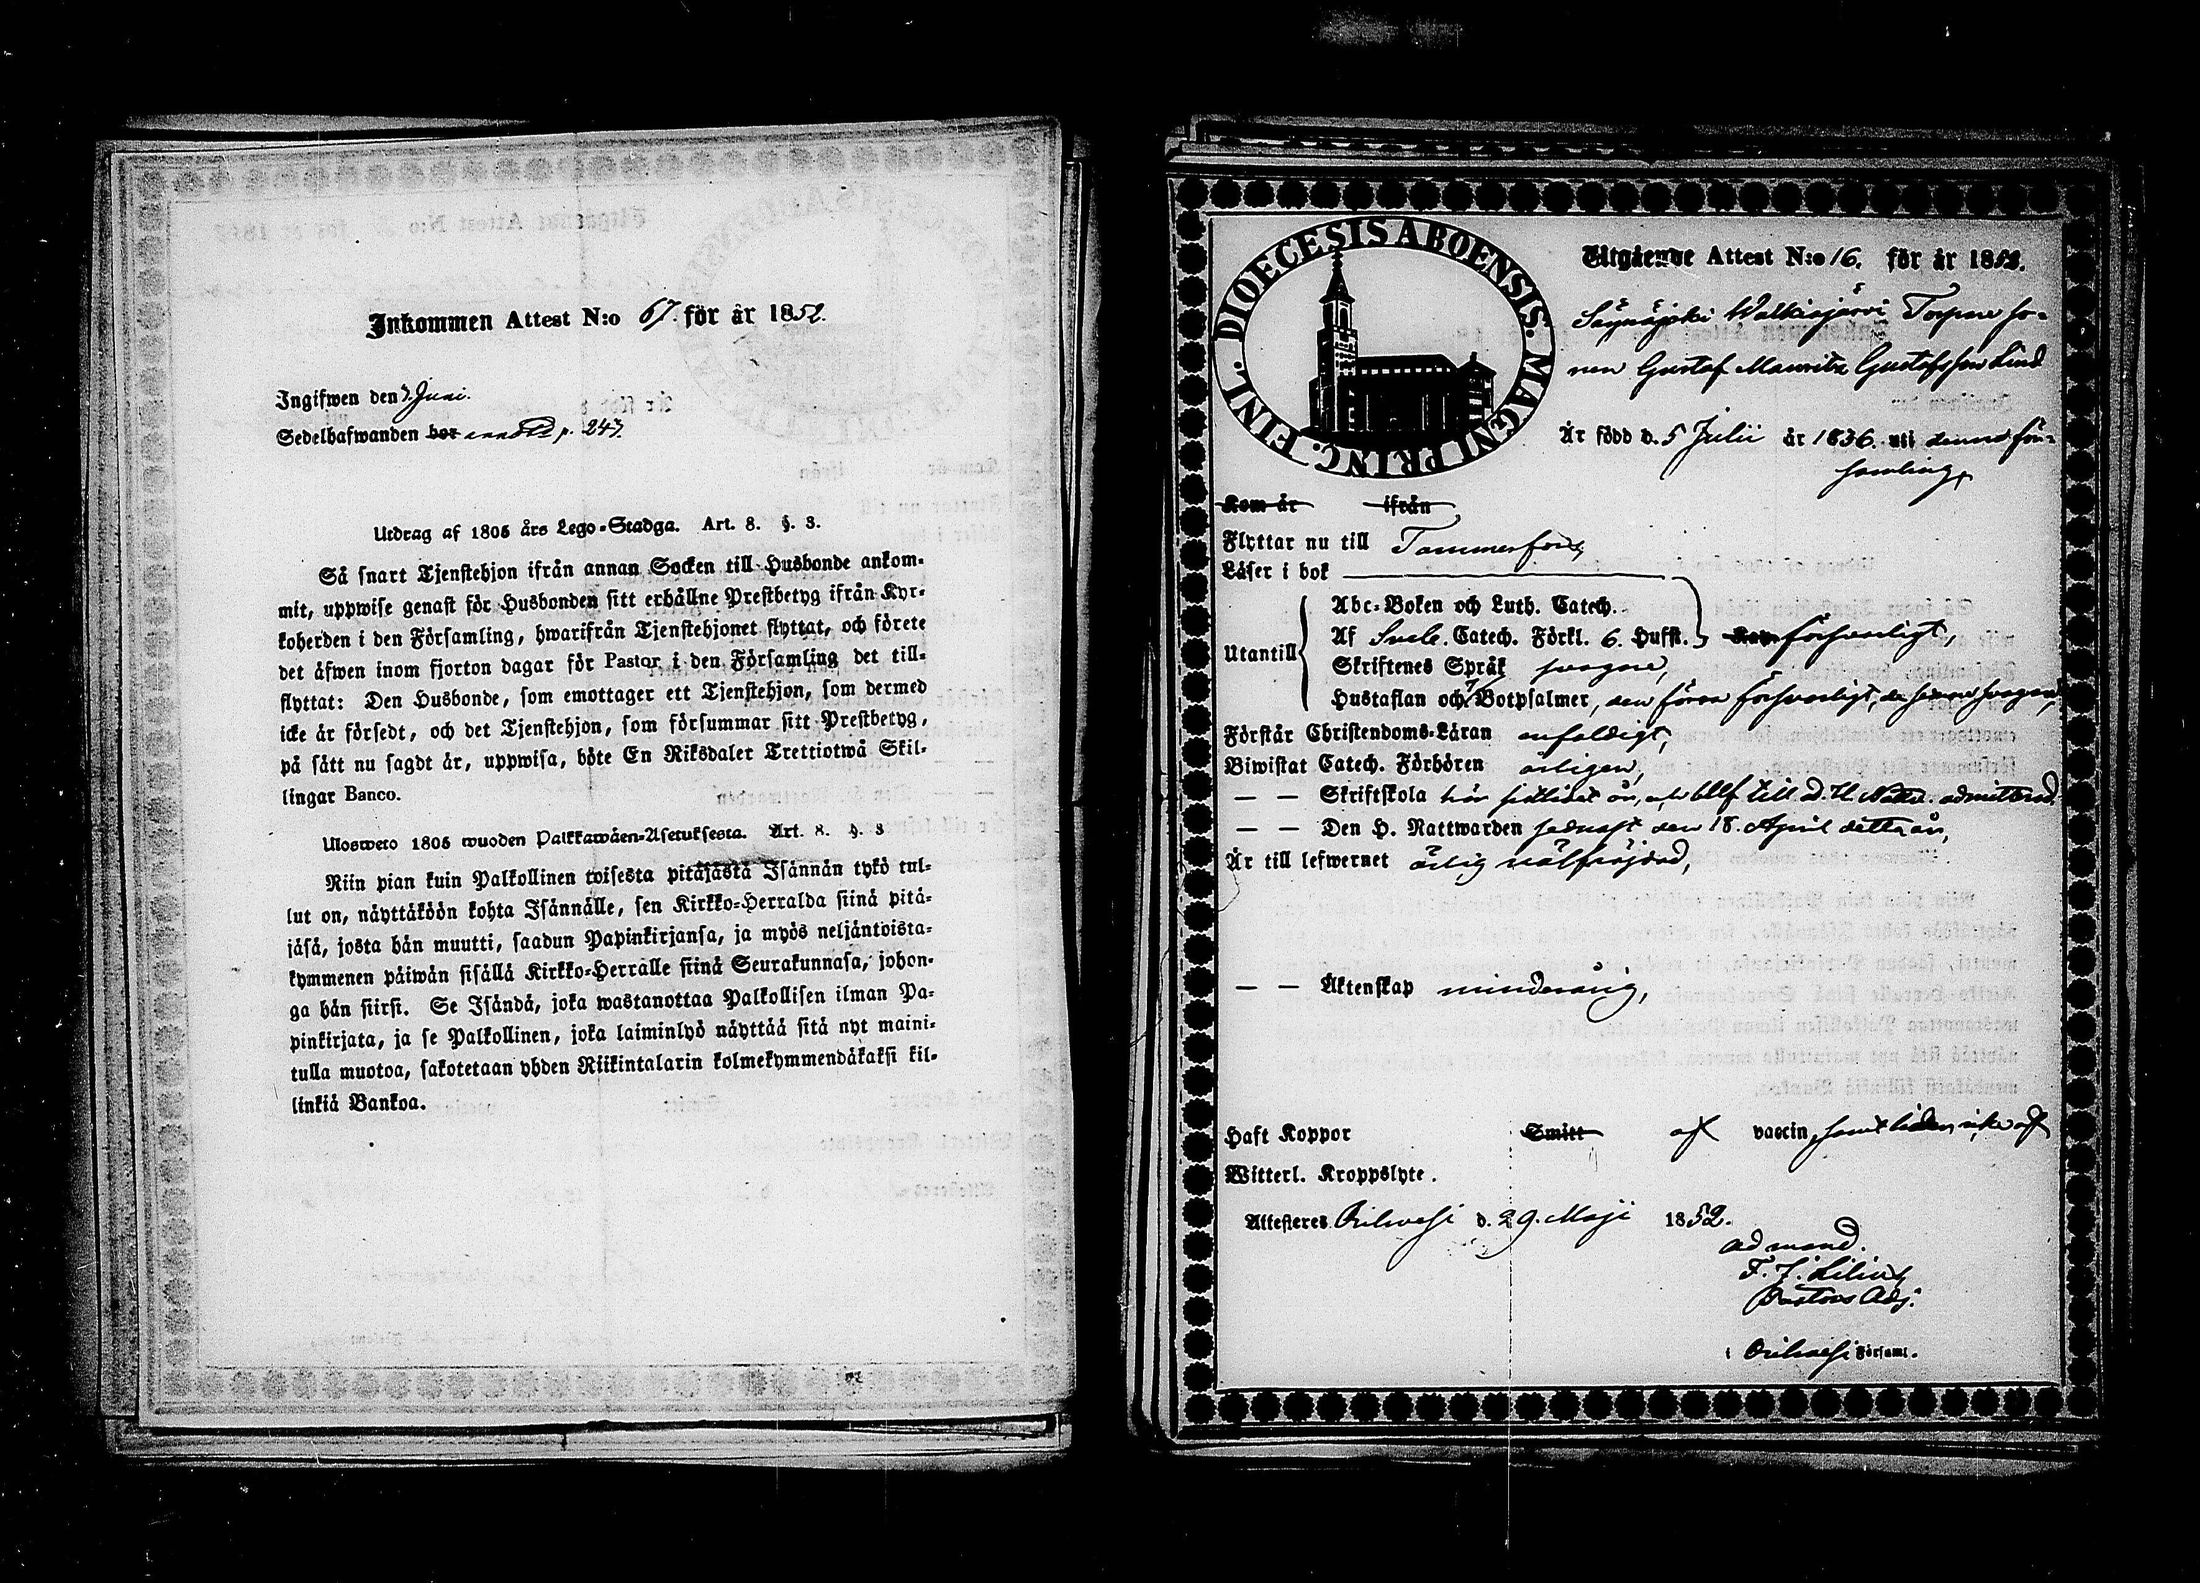 Inkommen Attest N:o 67. för år 1852.
Ingifwen den 7. Juni.
Sedelhafwanden bor p. 243.
Utdrag af 1805 års Lego-Stadga. Art. 8. §. 3.
Så snart Tjenstehjon ifrån annan Socken till Husbonde ankom-
mit, uppwise genast för Husbonden sitt erhållne Prestbetyg ifrån Kyr-
koherden i den Församling, hwarifrån Tjenstehjonet flyttat, och förete
det äfwen inom fjorton dagar för Pastor i den Församling det till-
flyttat: Den Husbonde, som emottager ett Tjenstehjon, som dermed
icke är försedt, och det Tjenstehjon, som försummar sitt Prestbetyg,
på sätt nu sagdt är, uppwisa, böte En Riksdaler Trettiotwå Skil-
lingar Banco.
Uloswèto 1805 wuoden Palkkawäen-Asetuksesta. Art. 8. §. 3
Niin pian kuin Palkollinen toisesta pitäjästä Isännän tykö tul-
lut on, näyttäköön kohta Isännälle, sen Kirkko-Herralda siinä pitä-
jäsä, josta hän muutti, saadun Papinkirjansa, ja myös neljäntoista-
kymmenen päiwän sisällä Kirkko-Herralle siinä Seurakunnasa, johon-
ga hän siirsi. Se Isändä, joka wastanottaa Palkollisen ilman Pa-
pinkirjata, ja se Palkollinen, joka laiminlyö näyttää sitä nyt maini-
tulla muotoa, sakotetaan yhden Riikintalarin kolmekymmendäkaksi kil-
linkiä Bankoa.
DIOECESIS ABOENSIS. MAGNI PRINC. FINL.
Utgående Attest N:o 16. för år 1852.
Säynäjoki Walkiajärvi Torpare so-
nen Gustaf Mauritz Gustafsson Lind
Är född d. 5 Julii år 1836. uti denna för-
samling,
Kom år ifrån
Flyttar nu till Tammerfors,
Läser i bok
Abc-Boken och Luth. Catech.
Af Sveb. Catech. Förkl. 6. Hufst. försvarligt,
Utantill
Skriftenes Språk svagare,
Hustaflan och 7 Botpsalmer, den förra försvarligt, de senare svagare,
Förstår Christendoms-Läran enfaldigt,
Biwistat Catech. Förhören årligen,
— — Skriftskola här sistlidet år, och blef till d. H. Nattv. admitterad.
— — Den H. Nattwarden sednast den 18. April detta år,
Är till lefwernet ärlig välfrejdad,
— — Äktenskap minderårig,
Haft Koppor Smitt af vaccin, samt lider icke af
Witterl. Kroppslyte.
Attesteres Orihvesi d. 29. Maji 1852.
ad mand.
F. J. Lilius
Pastors Adj.
i Orihvesi Församl.